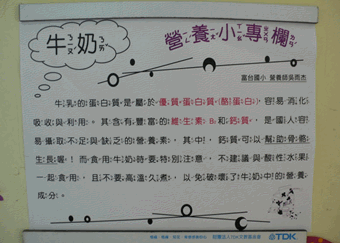 牛奶
營養小專欄
富台國小 營養師吳雨杰
牛乳的蛋白質是屬於優質蛋白質(酪蛋白),容易消化
吸收與利用。其含有豐富的維生素B2和鈣質,是國人容
易攝取不足與缺乏的營養素,其中,鈣質可以幫助骨骼
生長喔!而食用牛奶時要特別注意,不建議與酸性水果
一起食用,且不要高溫久煮,以免破壞了牛奶中的營養
成分。
TDK